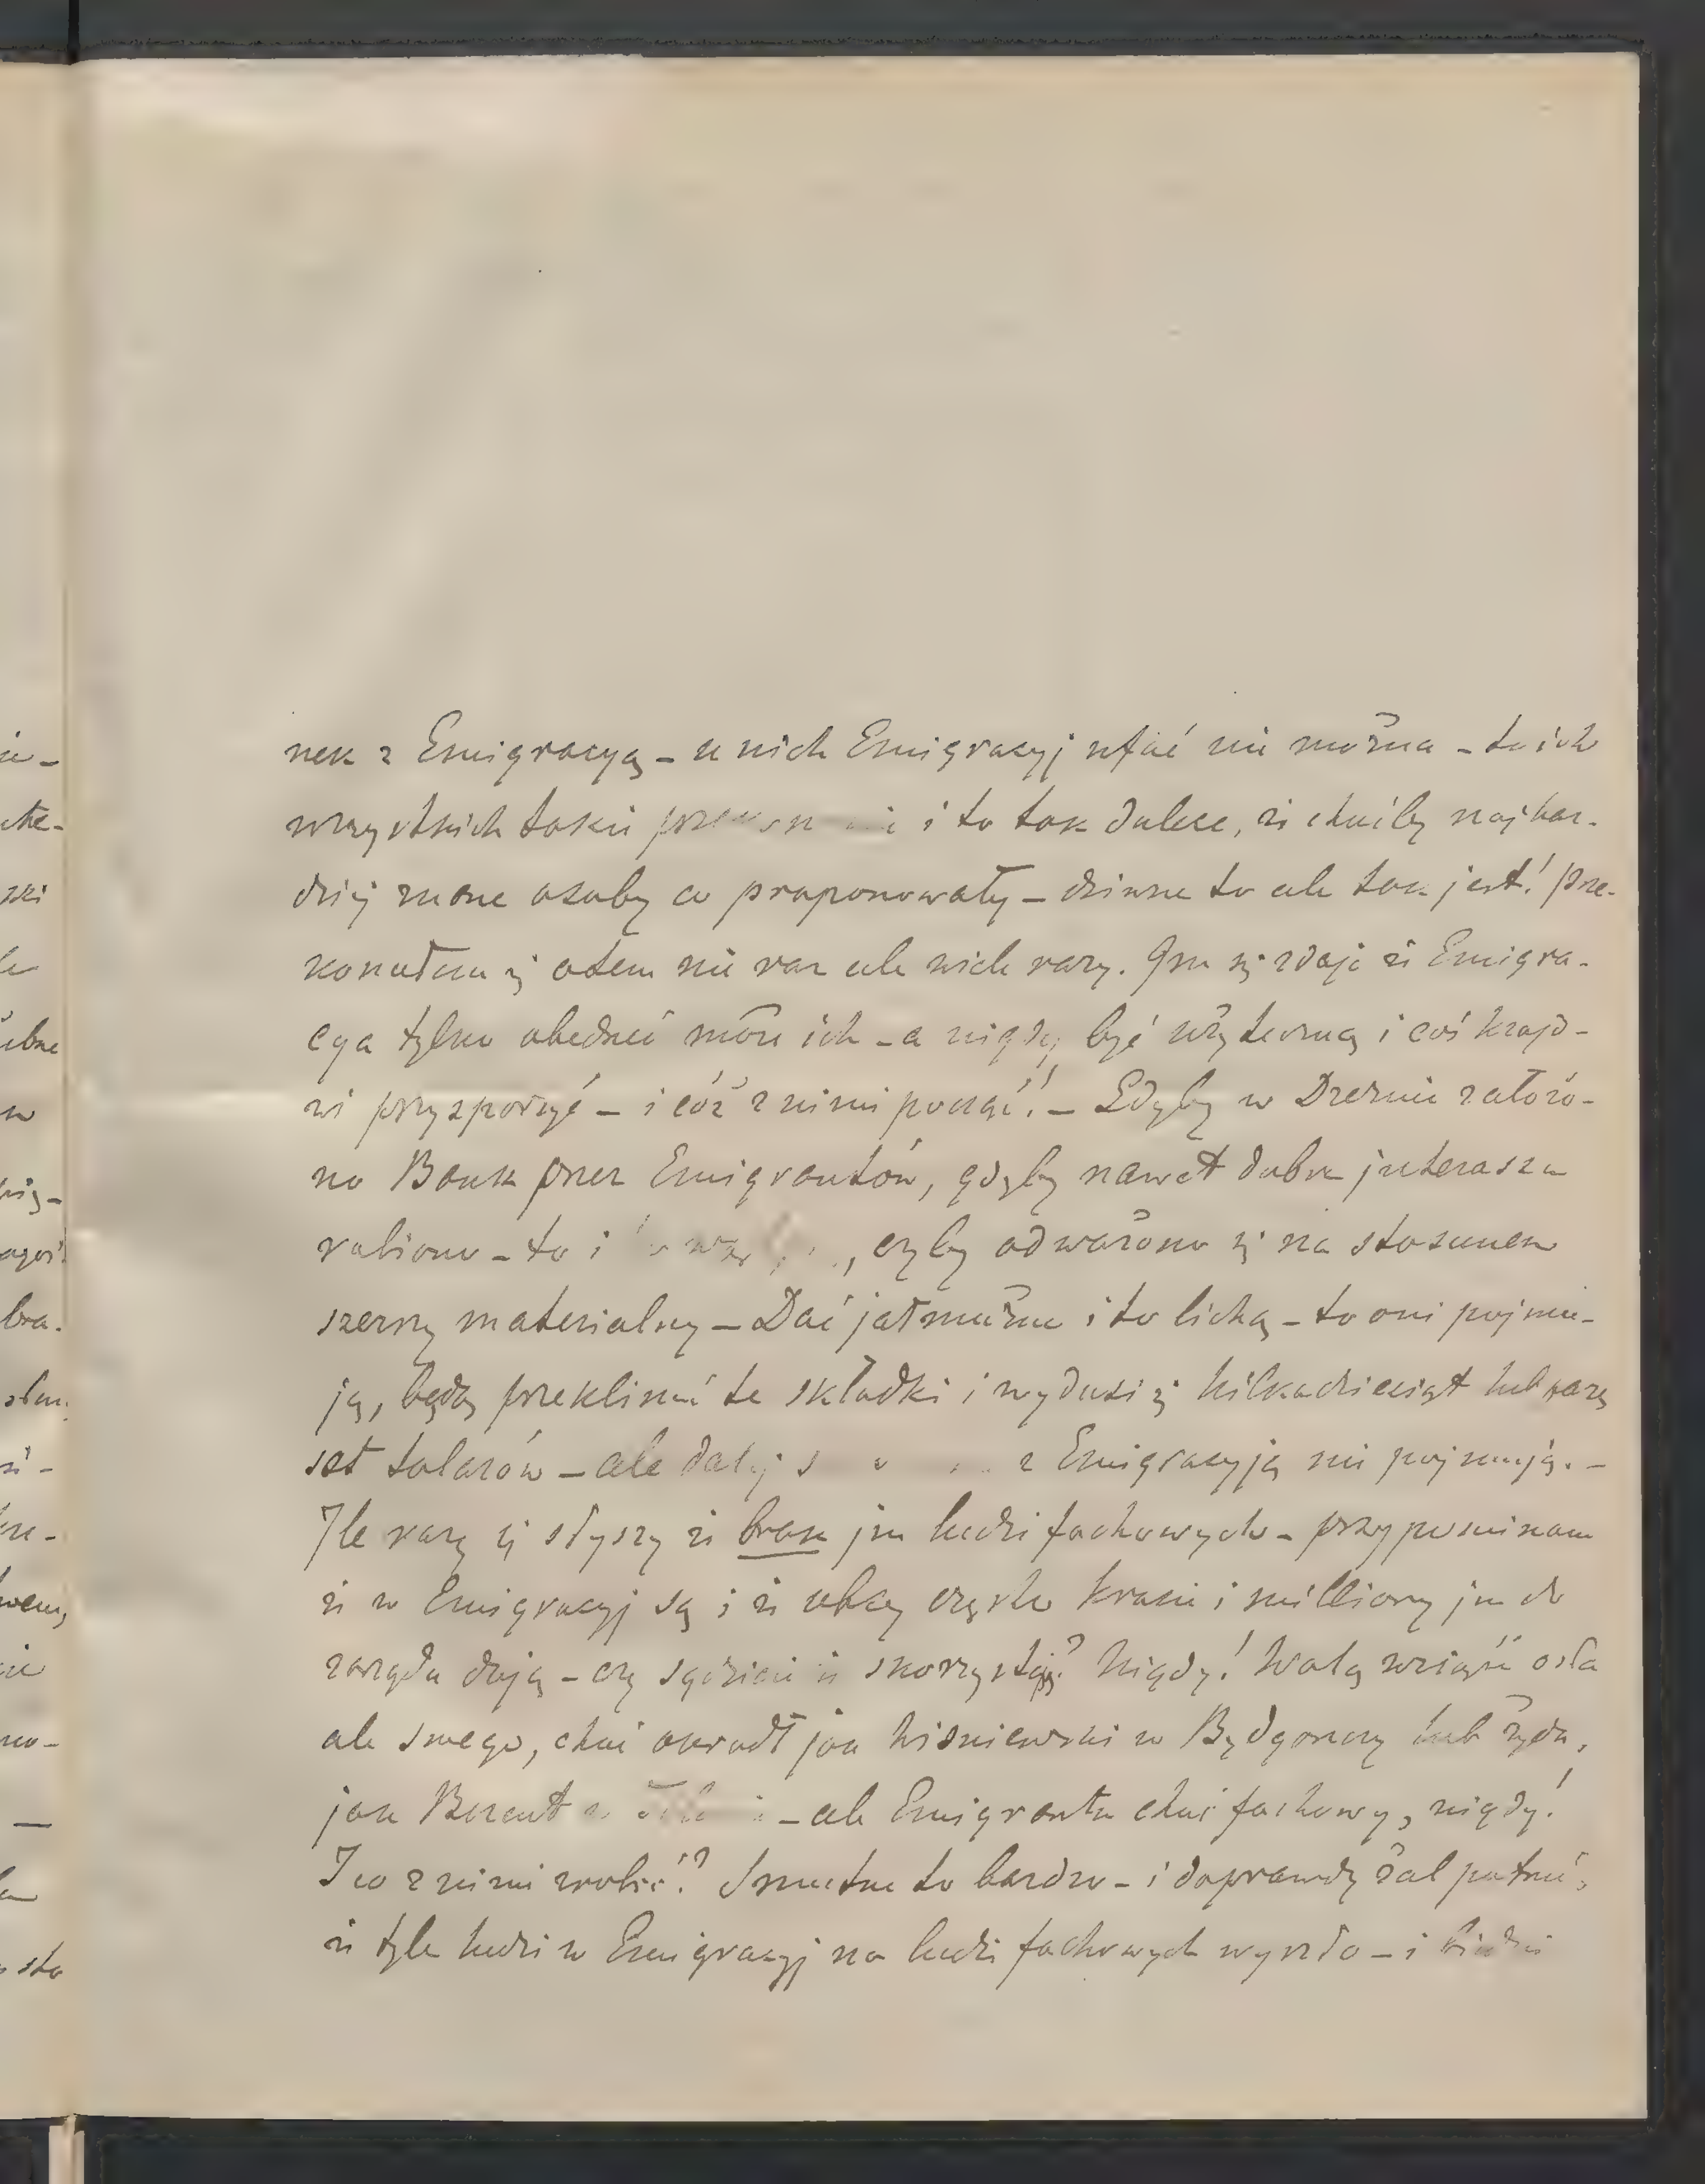 nek z Emigracyą – u nich Emigracyj ufać nie można – to ich
wszystkich takie i to tak dalece, że choćby najbar-
dziej znane osoby co proponowały – dziwne to ale tak jest! prze-
konałem się otem nie raz ale wiele razy. Jm się zdaje że Emigra-
cya tylko objadać może ich – a nigdy być użyteczną i coś krajo-
wi przysporzyć – i cóż z nimi począć! – Gdyby w Dreznie założo-
no Bank przez Emigrantów, gdyby nawet dobre jnteressa
robiono – to i , czyby odważono się na stosunek
szerszy materialny – Dać jałmużnę i to lichą – to oni pojmu-
ją, będą przeklinać te składki i wydusi się kilkadziesiąt lub parę
set talarów – ale dalej z Emigracyją nie pojmują. –
Jle razy się słyszy że brak jm ludzi fachowych – przypominam
że w Emigracyj są i że obcy często krocie i milliony jm do
zarządu dają – czy sądzicie że skorzystają? Nigdy! Wolą wziąść osła
ale swego, choć okradł jak Wiśniewski w Bydgoszczy lub żyda,
jak – ale Emigranta choć fachowy, nigdy!
I co z nimi zrobić? Smutne to bardzo – i doprawdy żal patrzeć,
że tyle ludzi w Emigracyj na ludzi fachowych wyszło – i
sto